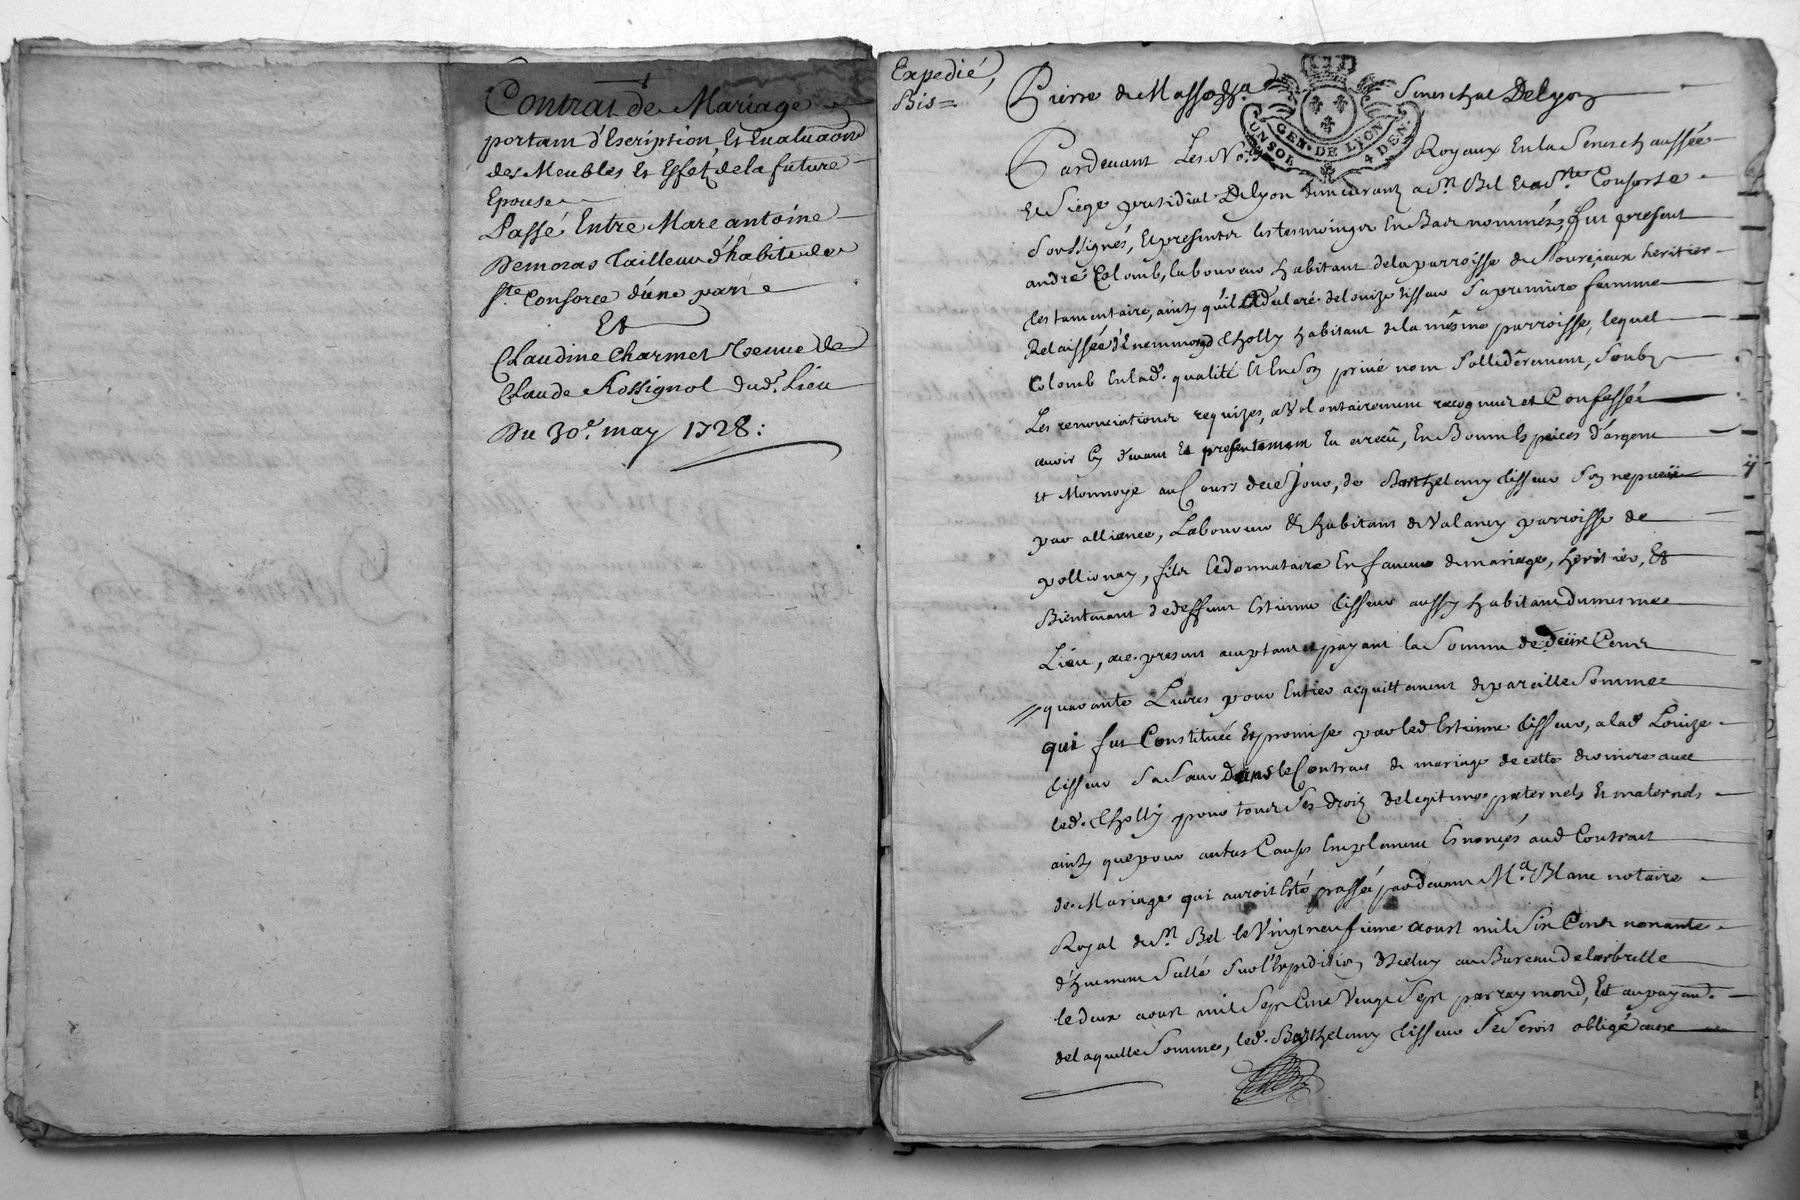 Contrat de Mariage
portant d'Escription, Et Evaluaon
des Meubles Et Effetz de la future
Epouse
Passé Entre Marc antoine
Demoras Tailleur d'habits de
Ste. Consorce d'une part
Et
Claudine Charmet Veuve de
Claude Rossignol dud. Lieu
Du 30e. may 1728:
Expedié,
Bis=
Pierre de Massossa Seneschal Delyon
GEN. DE LYON
UN SOL 4 DEN.
Pardevant Les Nores. Royaux En la Seneschaussée
Et Siege presidial Delyon demeurantz a St. Bel Et a Ste. Consorse
Soussignés, Et presentz les tesmoingz En Bas nommés, fut present
andré Colomb, laboureur habitant de la parroisse de Sourcieux heritier
testamentaire, ainsy qu'il a declaré de Louize Tisseur Sa premiere femme
Relaissée d'Ennemond Cholly habitant de la mesme parroisse, lequel
Colomb En lad. qualité Et En Son privé nom Sollidérement, Soubz
Les renonciations requizes, a Volontairement recognuz et Confessé
avoir Cy devant Et presentement Eu et receu, En Bonnes Espéces d'argent
Et Monnoye au Cours de ce Jour, de Barthelemy Tisseur Son nepveu
par alliance, Laboureur Et habitant de Valancy parroisse de
pollionay, filz Et donnataire En faveur de mariage, heritier, Et
Bientenant de deffunt Estienne Tisseur aussy habitant du mesme
Lieu, ace present acceptant et payant la Somme de deux Cents
quarante Livres pour Entier acquittement de pareille Somme
qui fut Constituée Et promise par led Estienne Tisseur, a lad Louize
Tisseur Sa Sœur dans le Contrat de mariage de cette derniere avec
led. Cholly pour tous Ses droitz de legitimes paternels Et maternels
ainsy que pour autres Causes Emplement Enoncés aud Contract
de Mariage qui auroit Esté passé pardevant Me. Blanc notaire
Royal de St. Bel le Vingt neufieme aoust mil Six Cents nonante
d'huement Scellé Sur l'Expedition d'Iceluy au Bureau de larbresle
le deux aoust mil Sept Cent Vingt Sept par raymond, Et au payant.
de laquelle Somme, led. Barthelemy Tisseur Se Seroit obligé avec